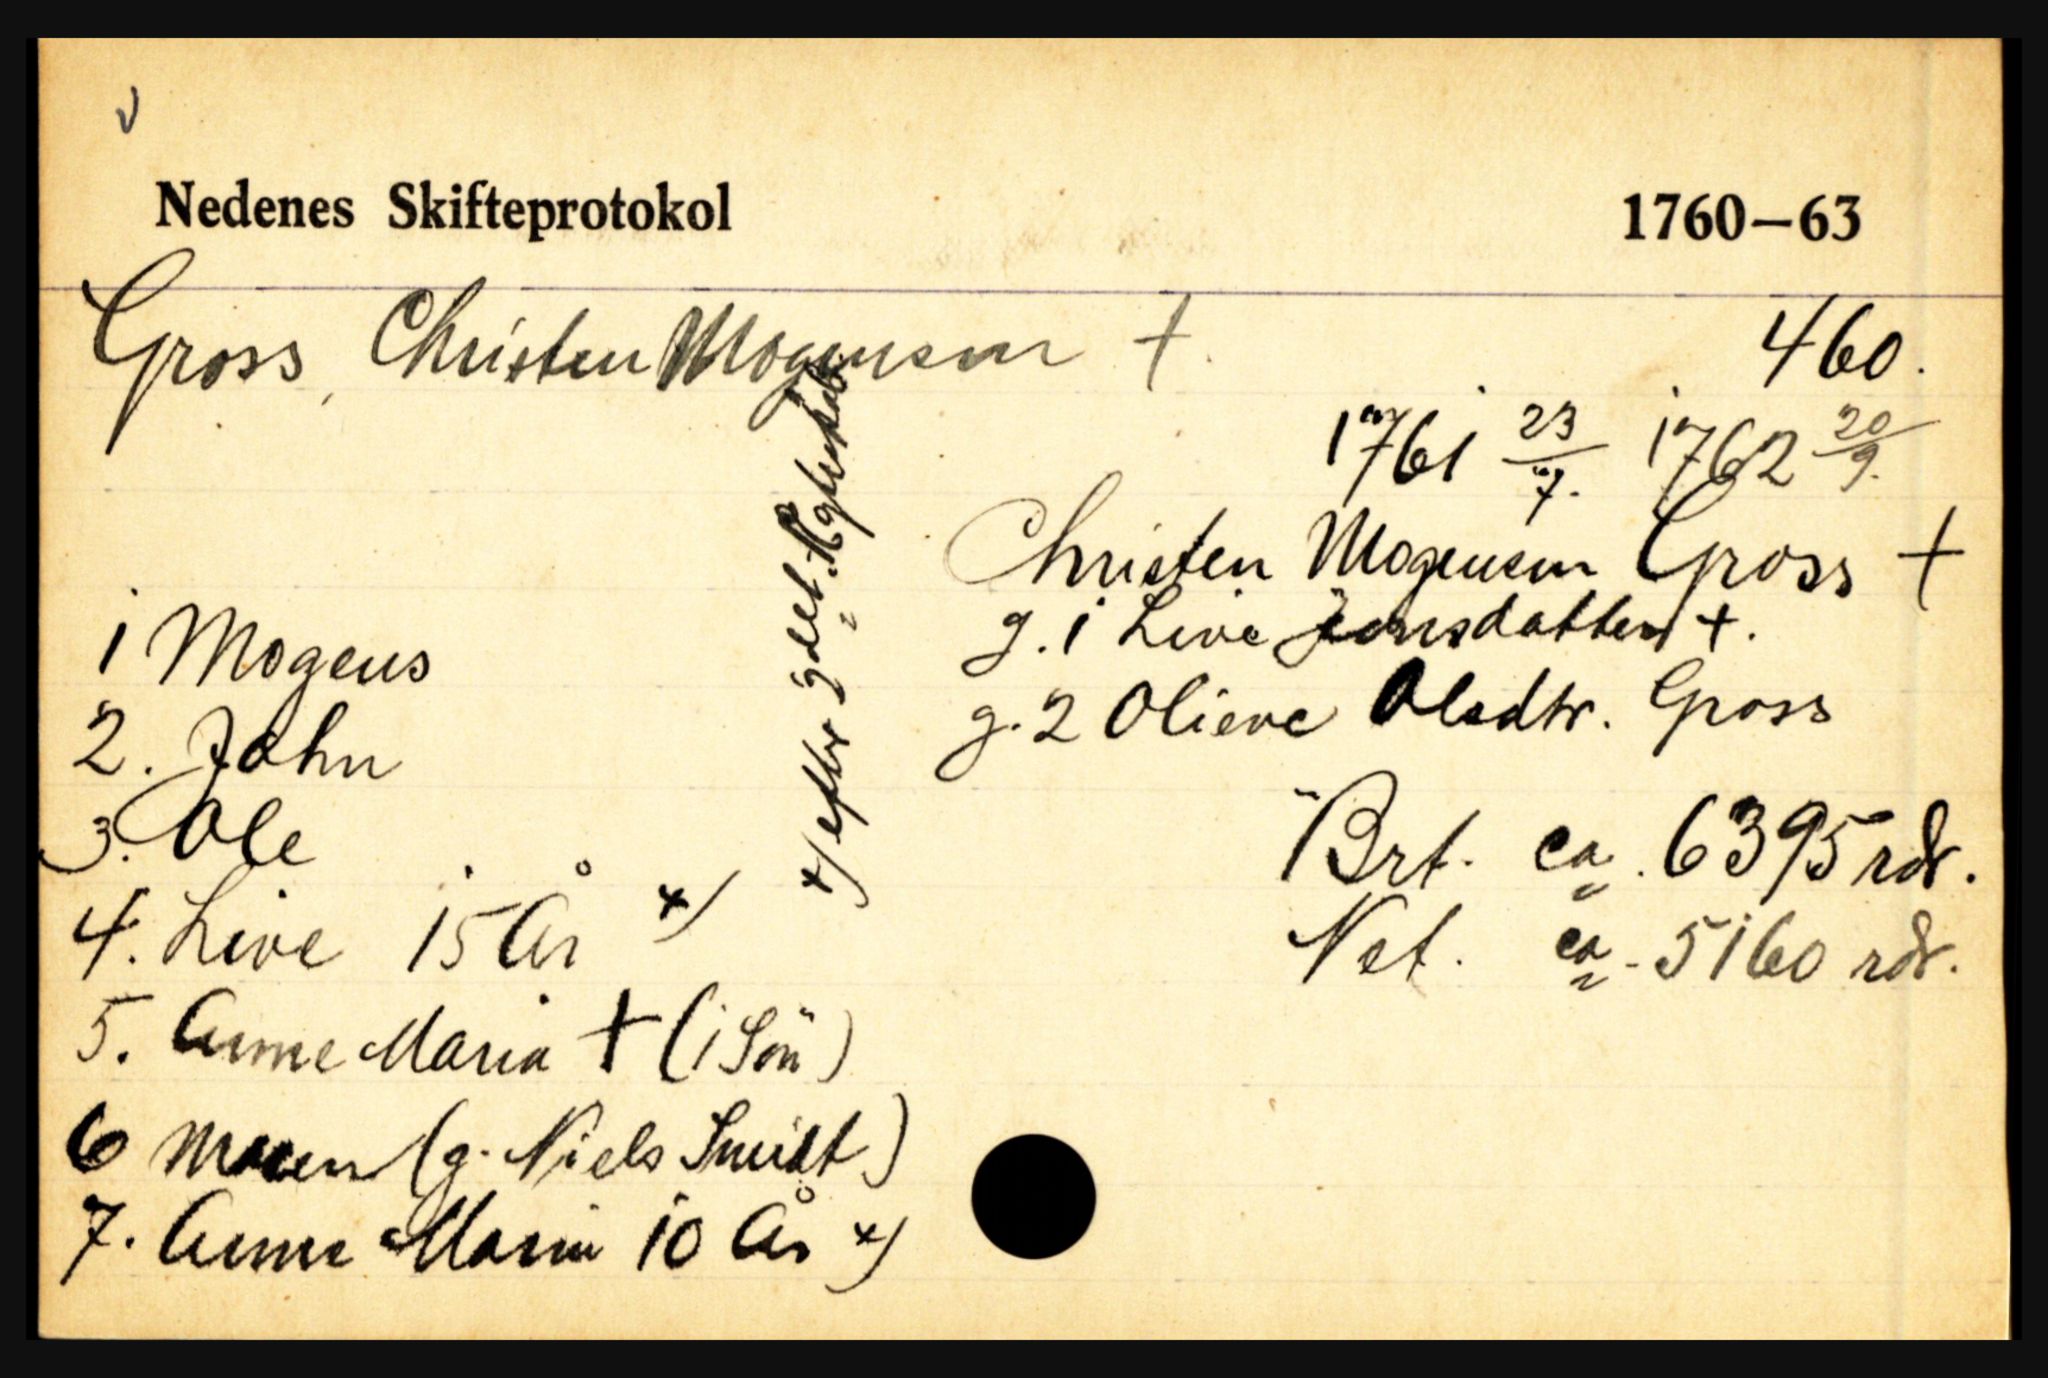 v
Nedenes Skifteprotokol 1760—63
Gross, Christen Mogensen +.
460.
1761 23/7. 1762 20/9.
Christen Mogensen Gross +
g. 1 Live Jensdatter +.
g. 2 Olieve Olsdtr. Gross
Brt. ca. 6395 rdr.
Net. ca. 5160 rdr.
1 Mogens
2. John
3. Ole
4. Live 15 År x)
5. Anne Maria + (1 Sön)
6 Maren (g. Niels Smidt)
7. Anne Maria 10 År x)
x) efter 2det Egteskab